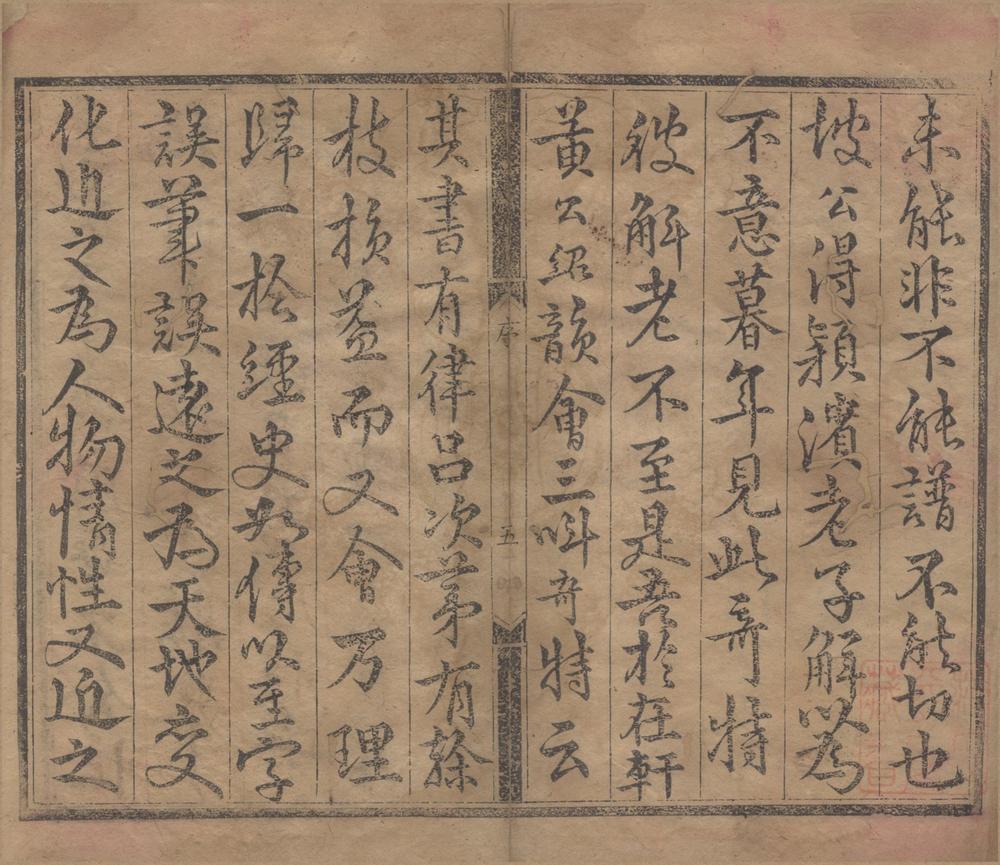 未能非不能譜不能切也
坡公得潁濱老子解以為
不意暮年見此奇特
彼解老不至是吾於在軒
黃公紹韻會三叫奇特云
序
五
其書有律呂次苐有條
枝損益而又會万理
歸一於經史如傳以至字
誤筆誤遠之為天地变
化近之為人物情性又近之